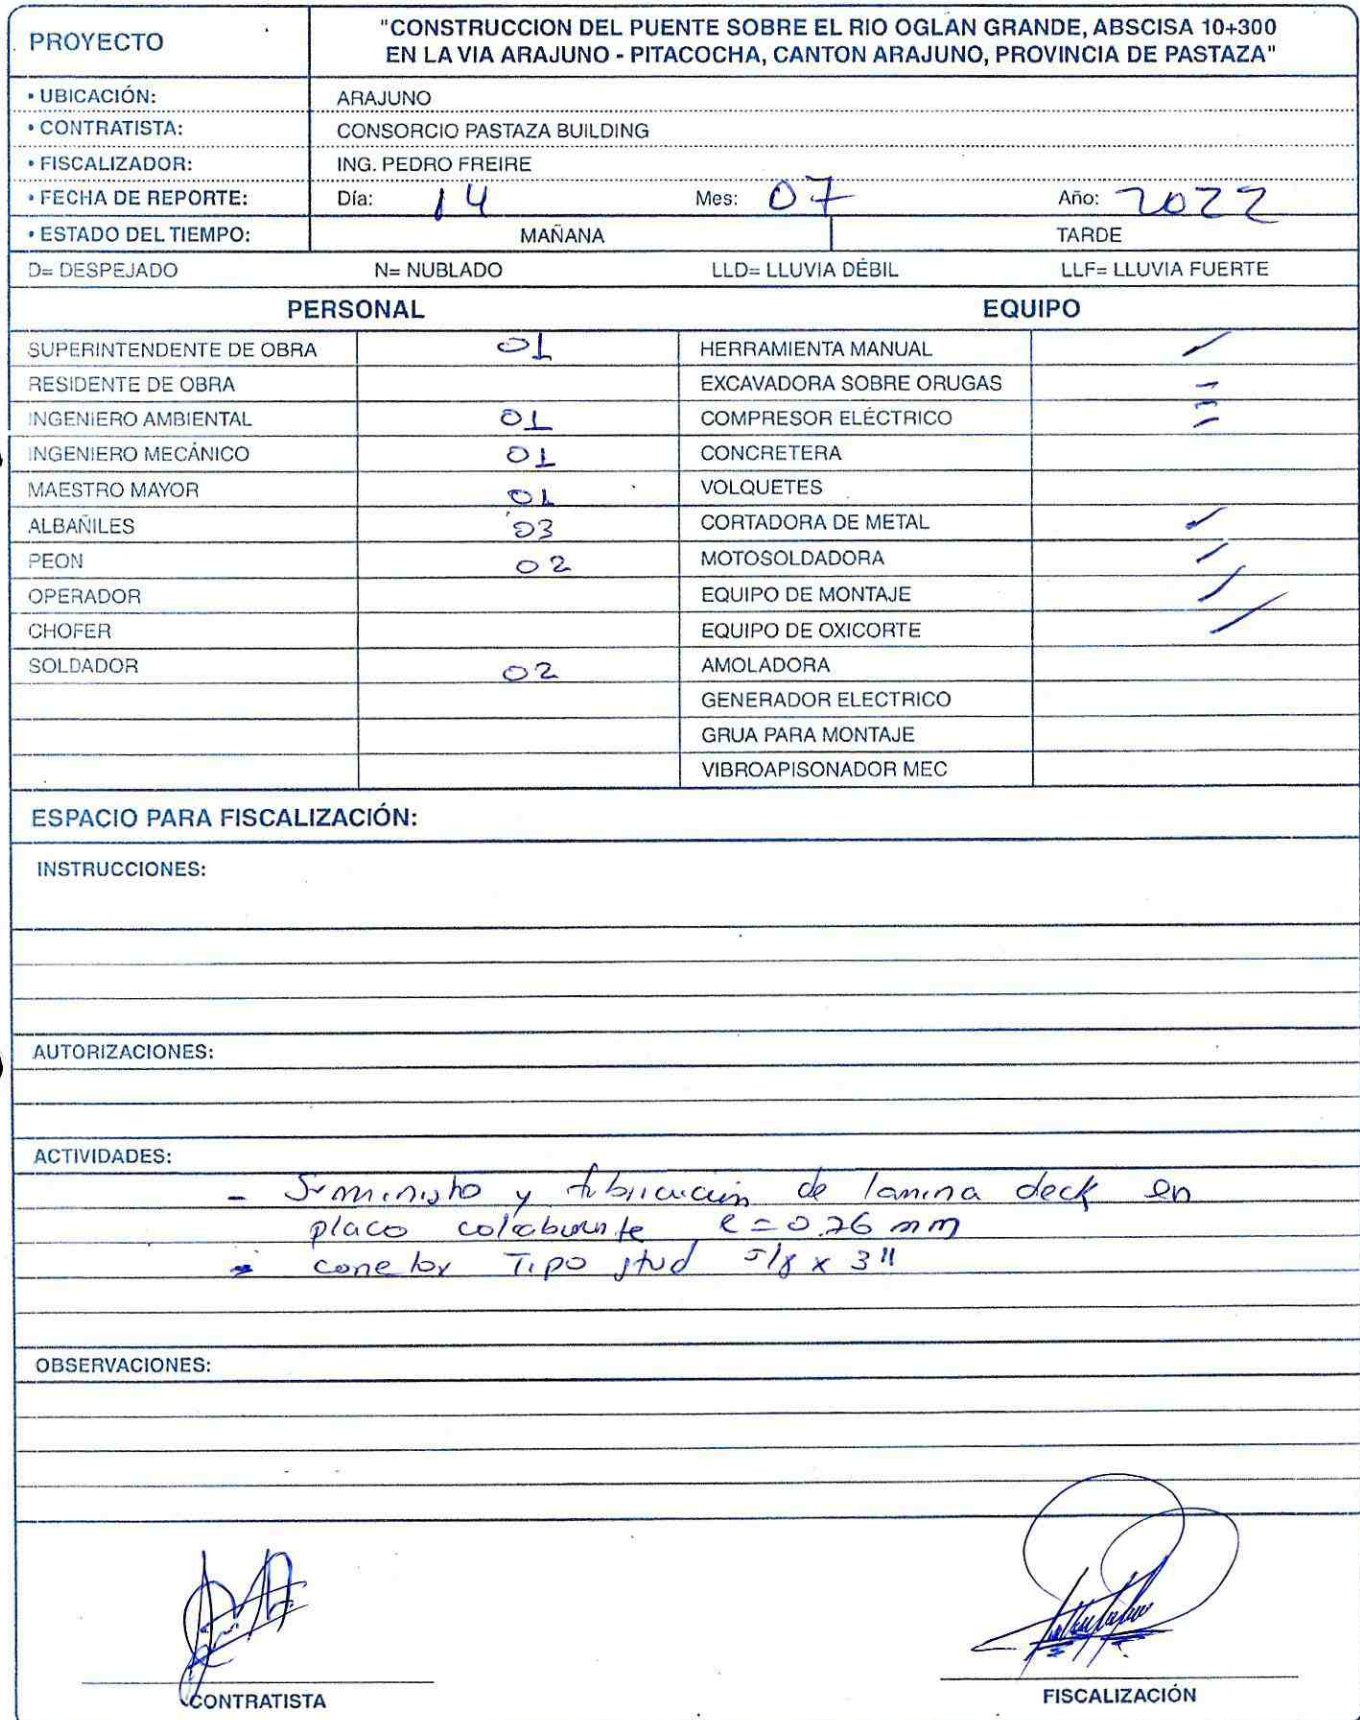 PROYECTO
"CONSTRUCCION DEL PUENTE SOBRE EL RIO OGLAN GRANDE, ABSCISA 10+300
EN LA VIA ARAJUNO - PITACOCHA, CANTON ARAJUNO, PROVINCIA DE PASTAZA"
• UBICACIÓN: ARAJUNO
• CONTRATISTA: CONSORCIO PASTAZA BUILDING
• FISCALIZADOR: ING. PEDRO FREIRE
• FECHA DE REPORTE: Día: 14 Mes: 07 Año: 2022
• ESTADO DEL TIEMPO: MAÑANA TARDE
D= DESPEJADO N= NUBLADO LLD= LLUVIA DÉBIL LLF= LLUVIA FUERTE
PERSONAL EQUIPO
SUPERINTENDENTE DE OBRA 01 HERRAMIENTA MANUAL
RESIDENTE DE OBRA EXCAVADORA SOBRE ORUGAS
INGENIERO AMBIENTAL 01 COMPRESOR ELÉCTRICO
INGENIERO MECÁNICO 01 CONCRETERA
MAESTRO MAYOR 01 VOLQUETES
ALBAÑILES 03 CORTADORA DE METAL
PEON 02 MOTOSOLDADORA
OPERADOR EQUIPO DE MONTAJE
CHOFER EQUIPO DE OXICORTE
SOLDADOR 02 AMOLADORA
GENERADOR ELECTRICO
GRUA PARA MONTAJE
VIBROAPISONADOR MEC
ESPACIO PARA FISCALIZACIÓN:
INSTRUCCIONES:
AUTORIZACIONES:
ACTIVIDADES:
- Suministro y fabricación de lamina deck en
placa colaborante e=0.76 mm
- conector Tipo stud 5/8 x 3"
OBSERVACIONES:
CONTRATISTA FISCALIZACIÓN